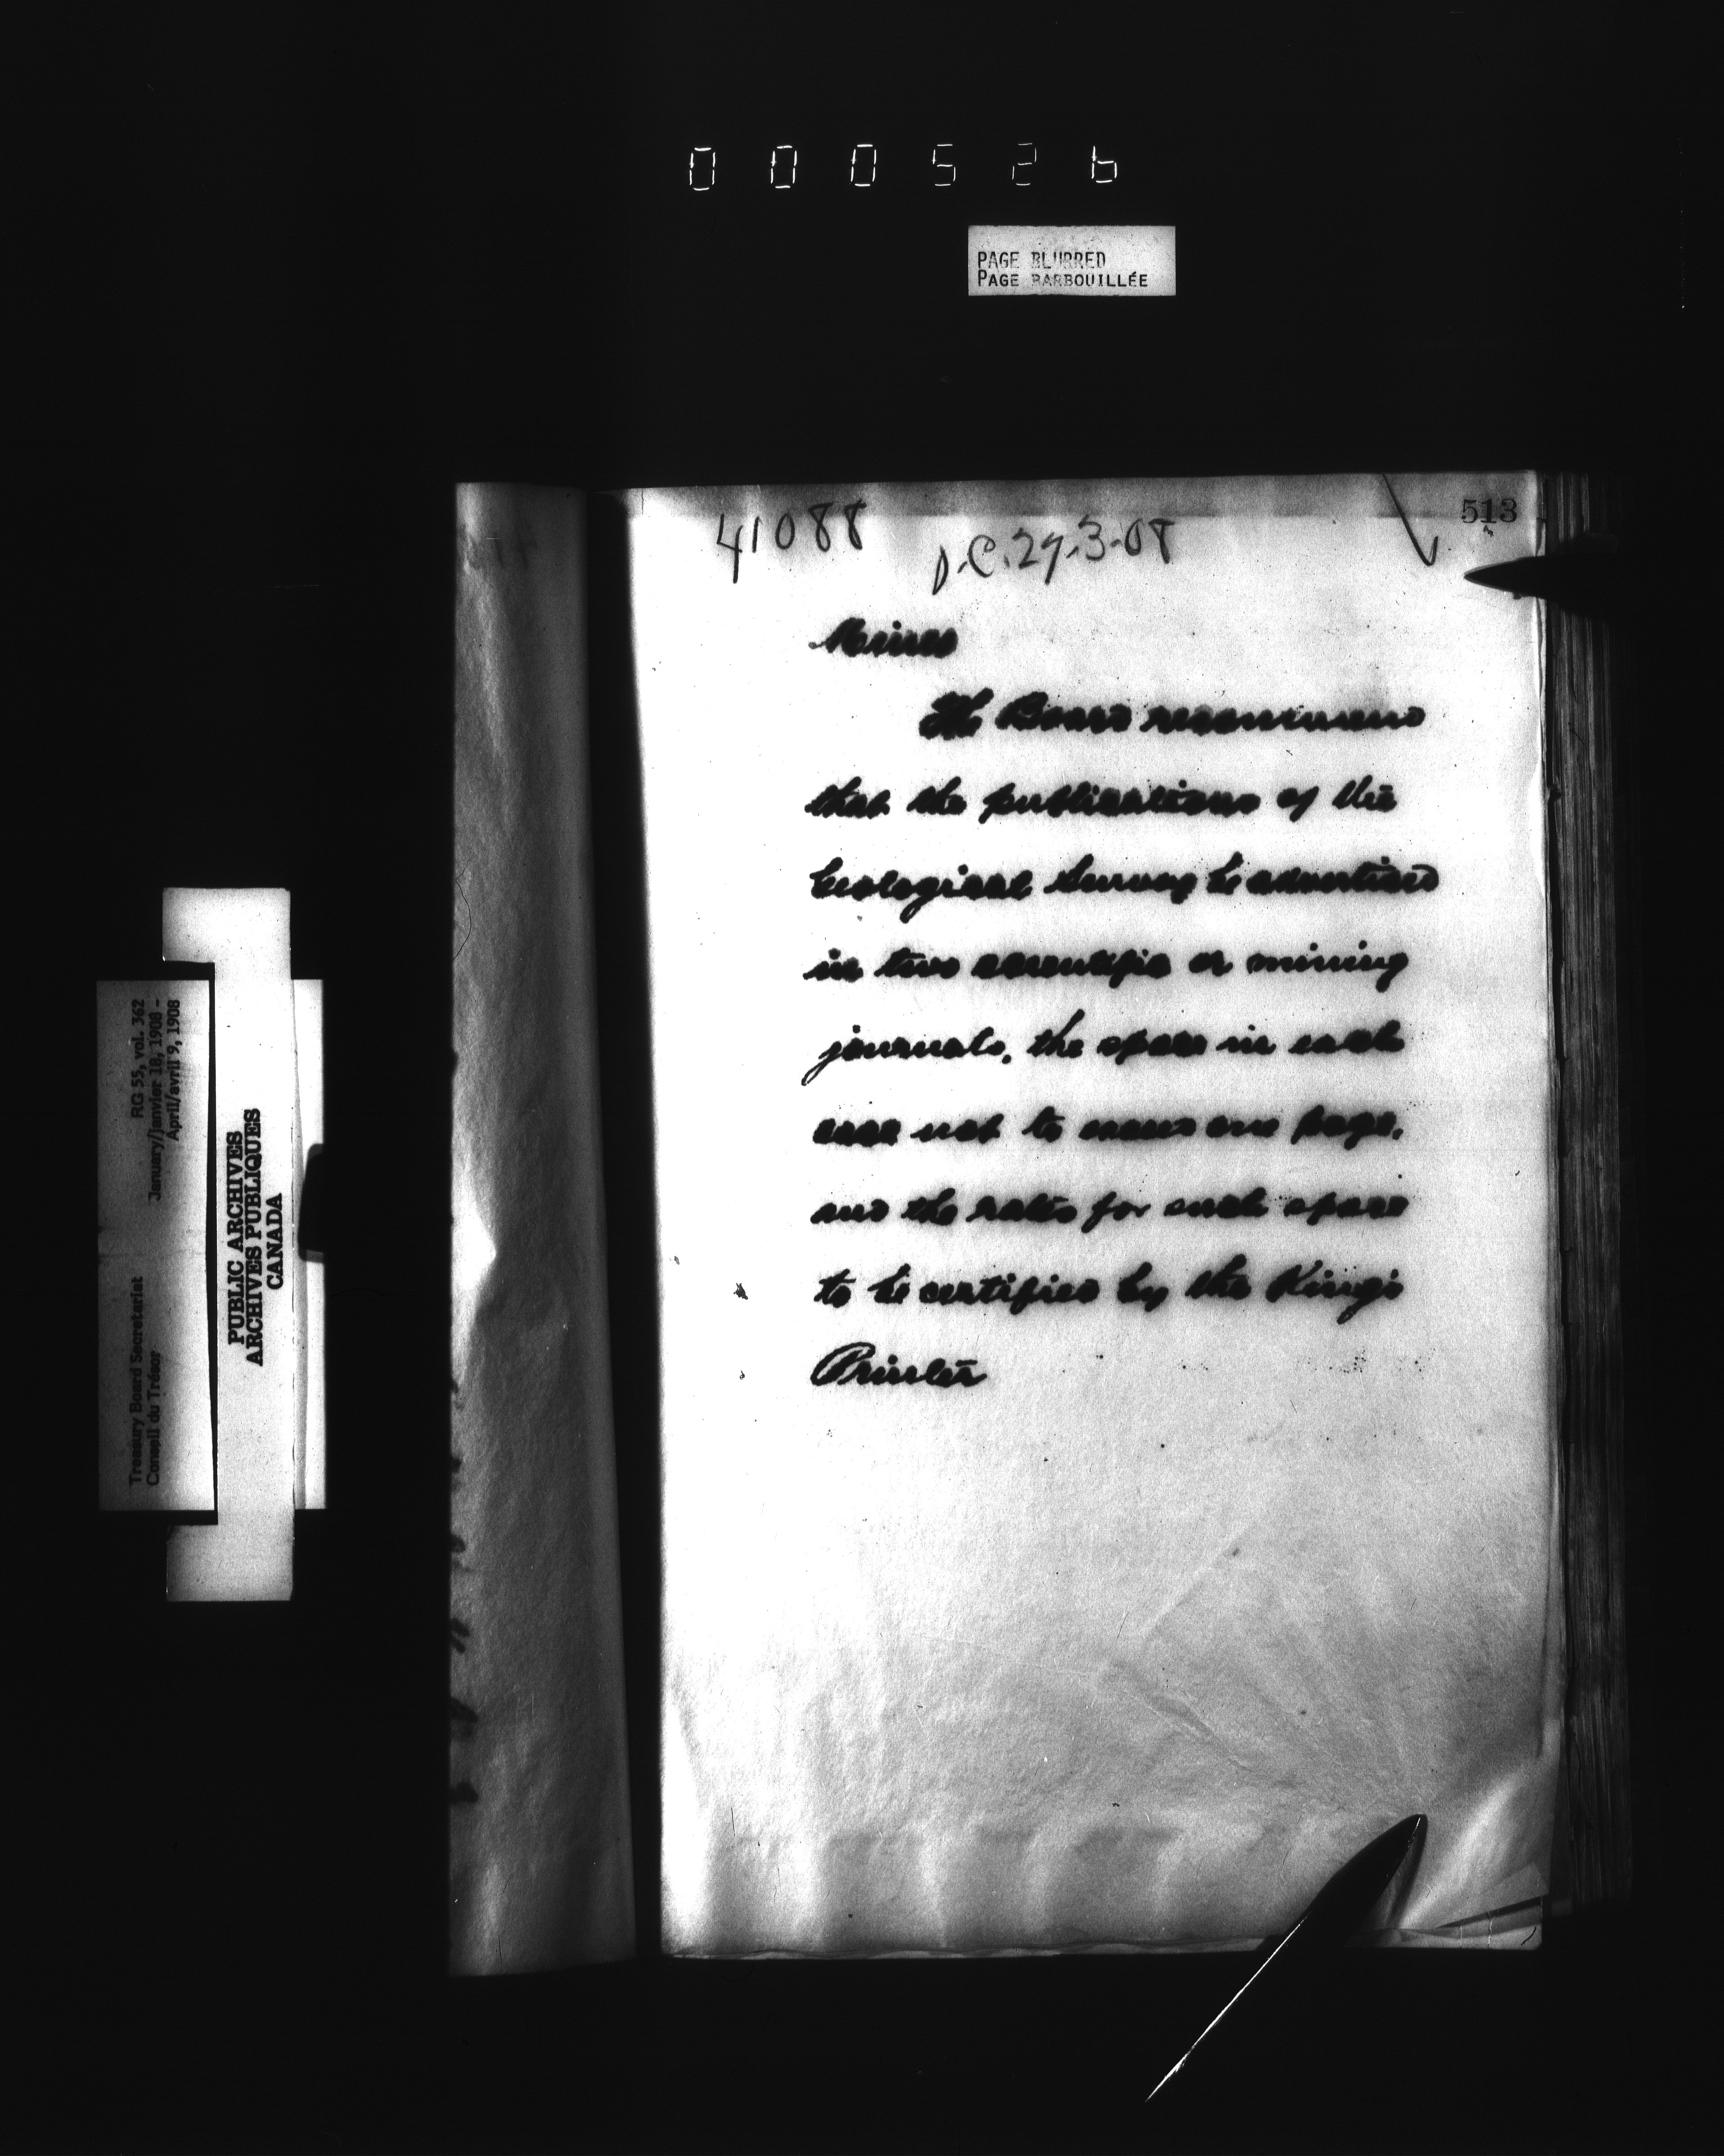 000526
PAGE BLURRED
PAGE BARBOUILLÉE
513
41088
P.C. 27-3-08
Mines
The Board recommend
that the publications of the
Geological Survey be advertised
in two scientific or mining
journals, the space in each
case not to exceed one page,
and the rates for such space
to be certified by the King's
Printer
RG 55, vol. 362
January/janvier 18, 1908 -
April/avril 9, 1908
Treasury Board Secretariat
Conseil du Trésor
PUBLIC ARCHIVES
ARCHIVES PUBLIQUES
CANADA